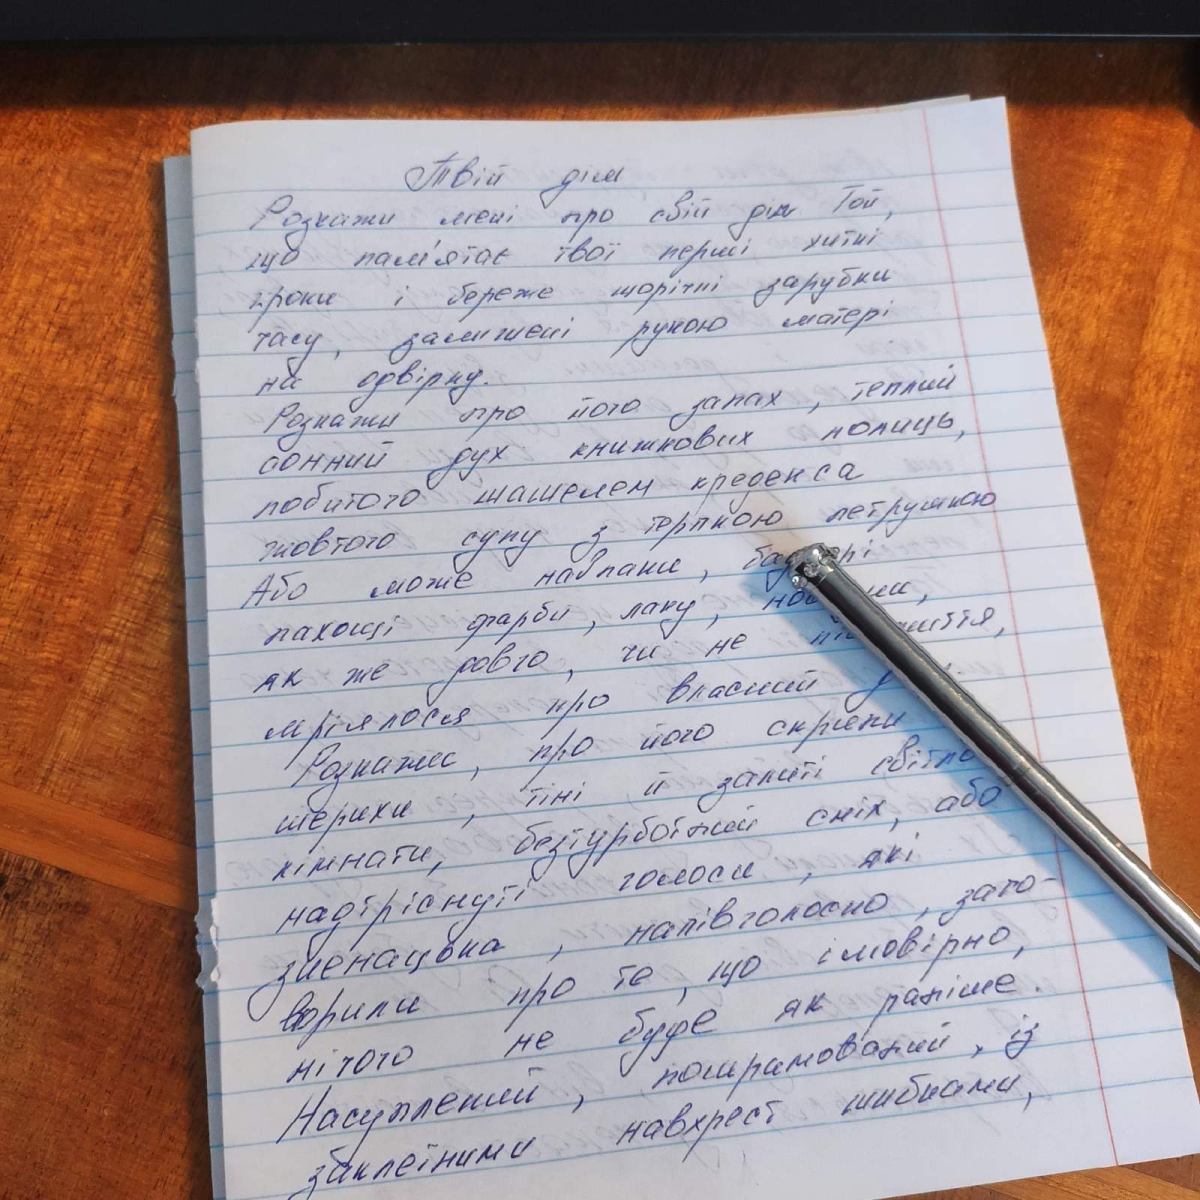 Твій дім
Розкажи мені про свій дім. Той,
що пам'ятає твої перші хиткі
кроки і береже щорічні зарубки
часу, залишені рукою матері
на одвірку.
Розкажи про його запах, теплий
сонний дух книжкових полиць,
побитого шашелем креденса
жовтого супу з терпкою петрушкою
Або може навпаки,
пахощі фарби, лаку,
як же довго, чи не
мріялося про власний
Розкажи, про його скрипи
шерихи, тіні й залиті світлом
кімнати, безтурботний сміх, або
надтріснуті голоси, які
зненацька, напівголосно, заго-
ворили про те, що імовірно,
нічого не буде як раніше.
Насуплений, пошрамований, із
заклеїними навхрест шибками,